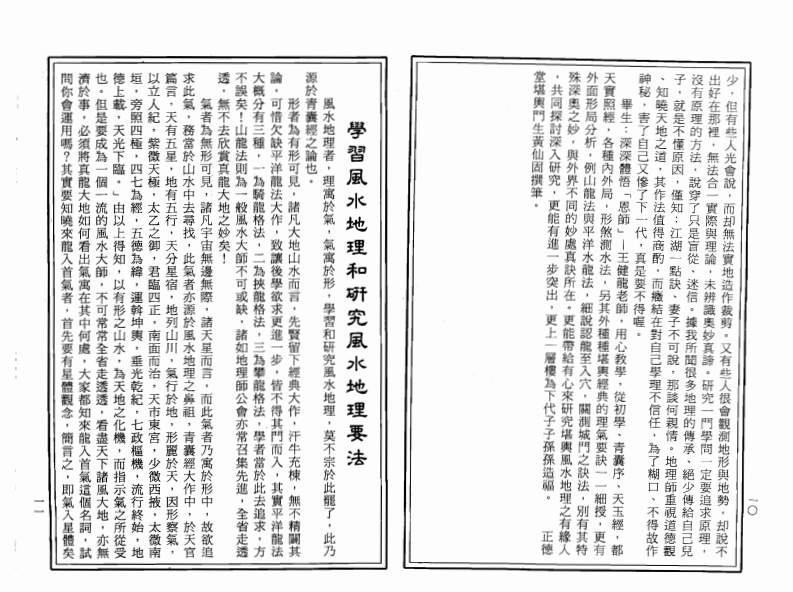 少，但有些人光會說，而却無法實地造作裁剪。又有些人很會觀測地形與地勢，却說不
出好在那裡，無法合一實際與理論，未辨識奧妙真諦。研究一門學問一定要追求原理，
沒有原理的方法，說穿了只是盲從、迷信。據我所聞很多地理的傳承、絕少傳給自己兒
子，就是不懂原因，僅知：江湖一點訣、妻子不可說，那談何親情。地理師重視道德觀
、知曉天地之道，其作法值得商酌，而癥結在對自己學理不信任，為了糊口、不得故作
神秘，害了自己又慘了下一代，真是要不得喔。
畢生：深深體悟「恩師」—王健龍老師，用心教學，從初學、青囊序、天玉經，都
天實照經，各種內外局，形煞測水法，另其外種種堪輿經典的理氣要訣一一細授，更有
外面形局分析，例山龍法與平洋水龍法，細說認龍至入穴，關測城門之訣法，別有其特
殊深奧之妙，與外界不同的妙處真訣所在。更能帶給有心來研究堪輿風水地理之有緣人
，共同探討深入研究，更能有進一步突出，更上一層樓為下代子子孫孫造福。　　正德
堂堪輿門生黃仙固撰筆。
一〇
學習風水地理和研究風水地理要法
風水地理者，理寓於氣，氣寓於形，學習和研究風水地理，莫不宗於此罷了，此乃
源於青囊經之論也。
形者為有形可見，諸凡大地山水而言，先賢留下經典大作，汗牛充棟，無不精闢其
論，可惜欠缺平洋龍法大作，致讓後學欲求更進一步，皆不得其門而入，其實平洋龍法
大概分有三種，一為騎龍格法，二為挾龍格法，三為攀龍格法，學者當於此去追求，方
不誤矣！山龍法則為一般風水大師不可或缺，諸如地理師公會亦常召集先進，全省走透
透，無不去欣賞真龍大地之妙矣！
氣者為無形可見，諸凡宇宙無邊無際，諸天星而言，而此氣者乃寓於形中，故欲追
求此氣，務當於山水中去尋找，此氣者亦源於風水地理之鼻祖，青囊經大作中，於天官
篇言，天有五星，地有五行，天分星宿，地列山川，氣行於地，形麗於天，因形察氣，
以立人紀，紫微天極，太乙之御，君臨四正，南面而治，天市東宮，少微西掖，太微南
垣，旁照四極，四七為經，五德為緯，運斡坤輿，垂光乾紀，七政樞機，流行終始，地
德上載，天光下臨。」由以上得知，以有形之山水，為天地之化機，而指示氣之所從受
也。但是要成為一個一流的風水大師，不可常常全省走透透，看盡天下諸風大地，亦無
濟於事，必須將真龍大地如何看出氣寓在其中何處，大家都知來龍入首氣這個名詞，試
問你會運用嗎？其實要知曉來龍入首氣者，首先要有星體觀念，簡言之，即氣入星體矣
一一